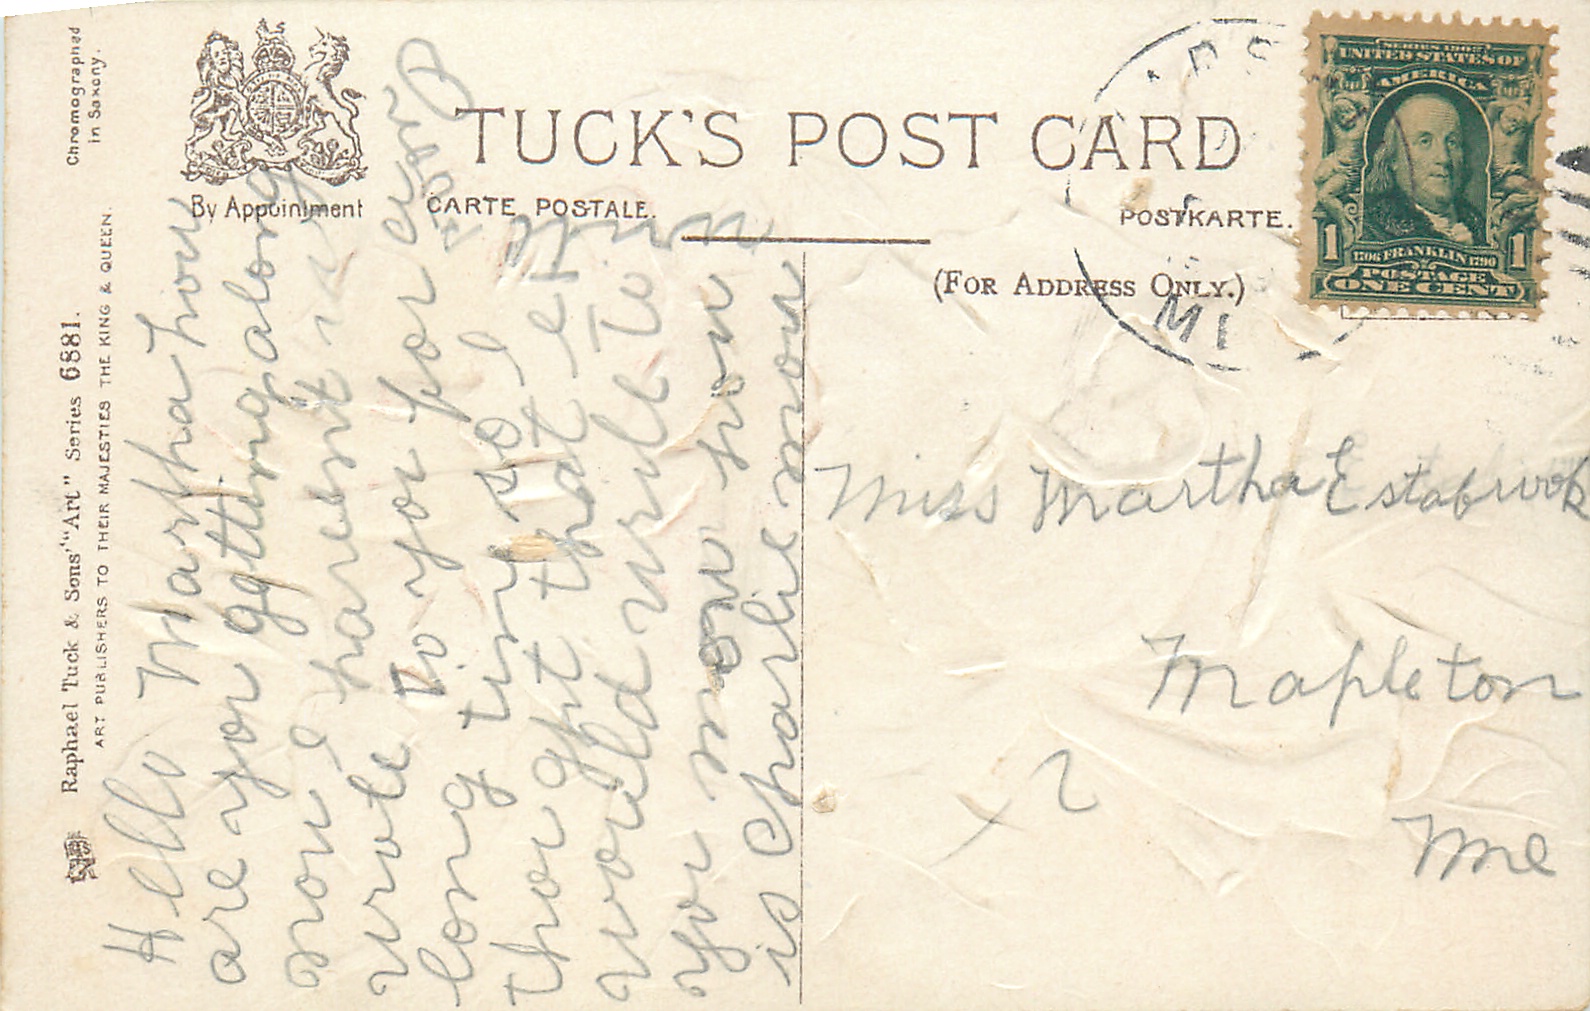 Chromographed
in Saxony.
Raphael Tuck & Sons' "Art" Series 6881.
ART PUBLISHERS TO THEIR MAJESTIES THE KING & QUEEN.
By Appointment
TUCK'S POST CARD
CARTE POSTALE.
POSTKARTE.
(FOR ADDRESS ONLY.)
SERIES 1902
UNITED STATES OF
AMERICA
1706 FRANKLIN 1790
POSTAGE
1 ONE CENT 1
MI
Hello Martha how
are you getting along
now I havesnt
wrote to you for a
long tiny so I
thought that I
would write to
you now how
is Charlie now
Miss Martha Estabrook
Mapleton
Me